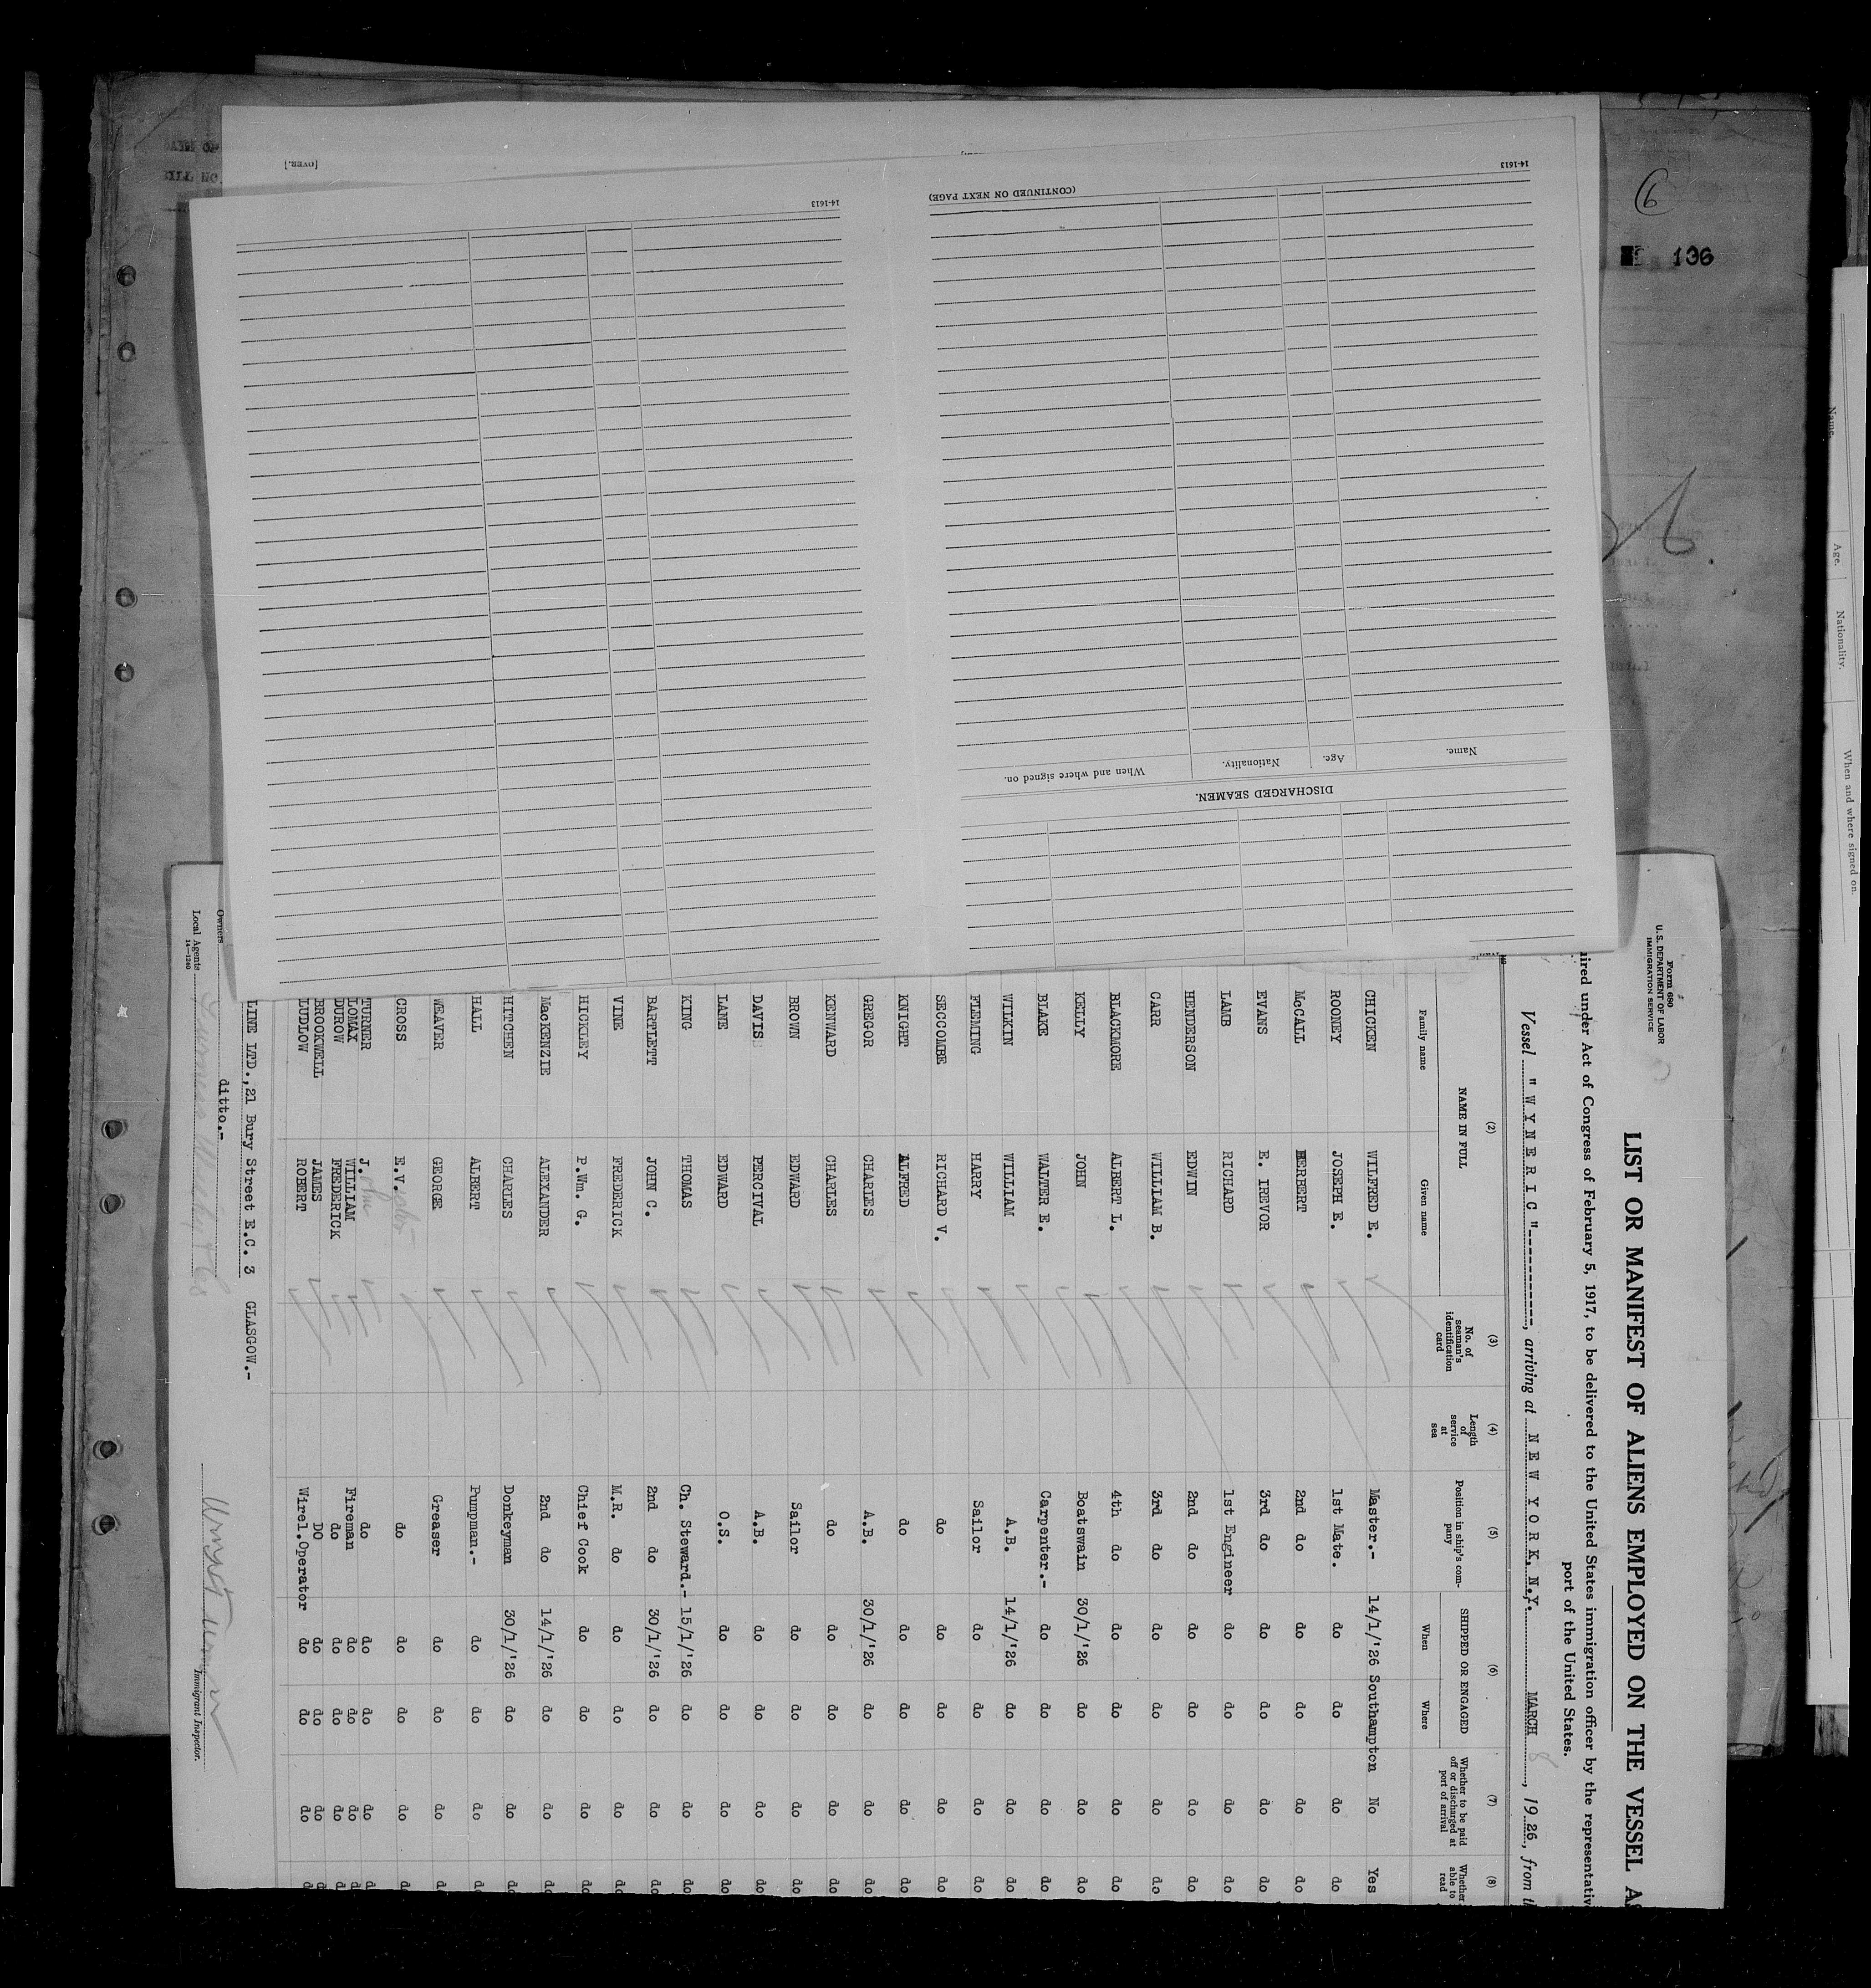 6
136
14-1613
[OVER.]
14-1613
(CONTINUED ON NEXT PAGE)
DISCHARGED SEAMEN.
Name.
Age.
Nationality.
When and where signed on.
Name.
Age.
Nationality.
When and where signed on.
Form 680
U.S. DEPARTMENT OF LABOR
IMMIGRATION SERVICE
LIST OR MANIFEST OF ALIENS EMPLOYED ON THE VESSEL AS
ired under Act of Congress of February 5, 1917, to be delivered to the United States immigration officer by the representativ
port of the United States.
Vessel "WYNERIC"----------, arriving at NEW YORK, N.Y. MARCH 8, 1926, from th
(2) (3) (4) (5) (6) (7) (8)
NAME IN FULL
Family name Given name
No. of seaman's identification card
Length of service at sea
Position in ship's company
SHIPPED OR ENGAGED
When Where
Whether to be paid off or discharged at port of arrival
Whether able to read
CHICKEN WILFRED E. Master.- 14/1/'26 Southampton No Yes
ROONEY JOSEPH E. 1st Mate. do do do do
McCALL HERBERT 2nd do do do do do
EVANS E. IREVOR 3rd do do do do do
LAMB RICHARD 1st Engineer do do do do
HENDERSON EDWIN 2nd do do do do do
CARR WILLIAM B. 3rd do do do do do
BLACKMORE ALBERT L. 4th do do do do do
KELLY JOHN Boatswain 30/1/'26 do do do
BLAKE WALTER E. Carpenter.- do do do do
WILKIN WILLIAM A.B. 14/1/'26 do do do
FLEMING HARRY Sailor do do do do
SECCOMBE RICHARD V. do do do do do
KNIGHT ALFRED do do do do do
GREGOR CHARLES A.B. 30/1/'26 do do do
KENWARD CHARLES do do do do do
BROWN EDWARD Sailor do do do do
DAVIS PERCIVAL A.B. do do do do
LANE EDWARD O.S. do do do do
KING THOMAS Ch. Steward.- 15/1/'26 do do do
BARTLETT JOHN C. 2nd do 30/1/'26 do do do
VINE FREDERICK M.R. do do do do do
HICKLEY P.Wm. G. Chief Cook do do do do
MacKENZIE ALEXANDER 2nd do 14/1/'26 do do do
HITCHEN CHARLES Donkeyman 30/1/'26 do do do
HALL ALBERT Pumpman.- do do do do
WEAVER GEORGE Greaser do do do do
CROSS E.V. do do do do do
TURNER J. ohn do do do do d
LOMAX WILLIAM Fireman do do do d
DUROW FREDERICK do do do do d
BROOKWELL JAMES DO do do do d
LUDLOW ROBERT Wirel.Operator do do do d
LINE LTD.,21 Bury Street E.C. 3 GLASGOW.-
Owners ditto.-
Local Agents
14-1240
Immigrant Inspector.